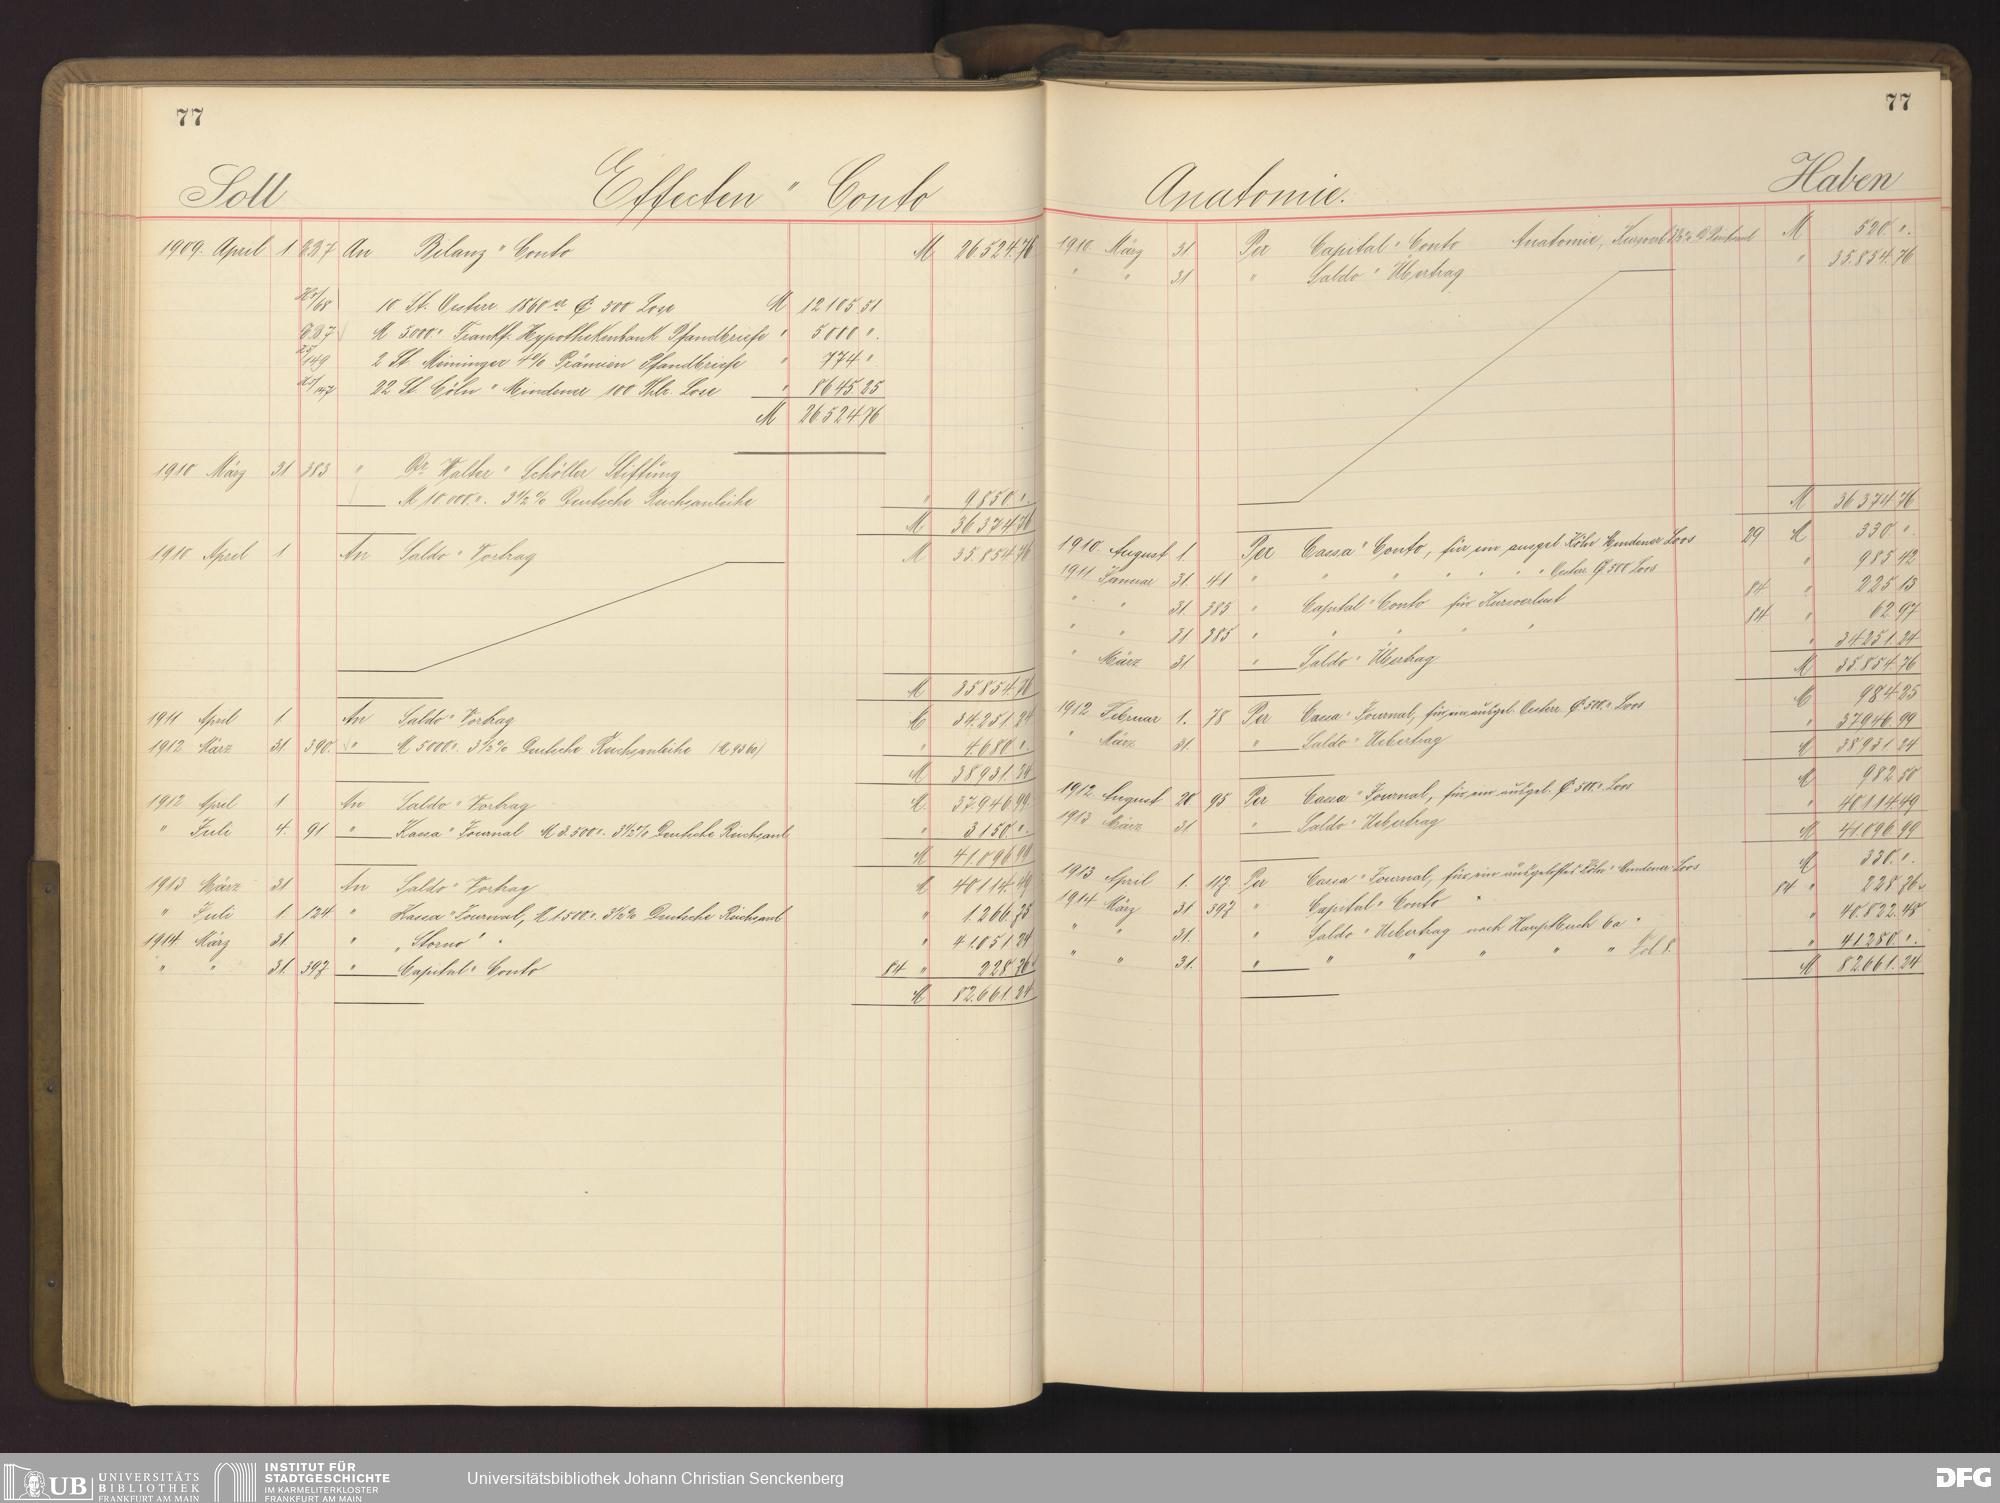 77
Soll Effecten " Conto
1909. April 1 An Bilanz " Conto M 26.524.76
10 St. Oesterr. 1860er 500 Lose M 12105.51
M 5.000.". Frankf. Hypothekenbank Pfandbriefe " 5000 ".
149 2 St. Meininger 4% Prämien Pfandbriefe " 774 "
22 St. Cöln " Mindener 100 Thlr. Lose " 8645.25
M 26524.76
1910 März 31 383 " Dr. Walter " Schöller Stiftung
M 10.000.". 3 1/2 % Deutsche Reichsanleihe " 9850 ".
M 36374.76
1910 April 1 An Saldo " Vortrag M 35.854.76
M 35854.76
1911 April 1 An Saldo " Vortrag M 34.251.24
1912 März 31 390. " M 5000.". 3 1/2 % Deutsche Reichsanleihe " 4.680 ".
M 38931.24
1912 April 1 An Saldo " Vortrag M 37946.99
" Juli 4. 91 " Kassa " Journal M 3.500.". 3 1/2 % Deutsche Reichsanl. " 3150 ".
M 41.096.99
1913 März 31 An Saldo " Vortrag M 40114.49
" Juli 1 124 " Kassa " Journal, M 1500.". 3 1/2 % Deutsche Reichsanl. " 1.266.75
1914 März 31. " „Storno" " " 41.051.24
" " 31. 397 " Capital " Conto 84 " 228.76
M 82.661.24
77
Anatomie. Haben
1910. März 31 Per Capital " Conto Anatomie, M 520 ".
" " 31 " Saldo " Übertrag " 35.854.76
M 36374.76
1910. August 1. Per Cassa " Conto, für ein ausgel. Köln Mindener Loos 29 M 330 ".
1911 Januar 31. 41 " " " " " " " Oesterr. 500 Loos " 985.42
" " 31. 385 " Capital " Conto für Kursverlust 84 " 225.13
" " 31 385 " " " " " 84 " 62.97
" März 31 " Saldo " Übertrag " 34251.24
M 35.854.76
1912 Februar 1. 78 Per Cassa " Journal, für ein ausgel. Oesterr. 500.". Loos M 984.25
" März 31. " Saldo " Uebertrag " 37946.99
M 38931.24
1912 August 20 95 Per Cassa " Journal, für ein ausgel. 500.". Loos M 982.50
1913 März 31 " Saldo " Uebertrag " 40114.49
M 41.096.99
1913 April 1. 117. Per Cassa " Journal, für ein ausgelostes Köln " Mindener Loos M 330. ".
1914 März 31 397 " Capital " Conto " 84 " 228.76
" " 31. " Saldo " Uebertrag nach Hauptbuch 6a " " 40.822.48
" " 31. " " " " " " Fol 8. " 41280 ".
M 82.661.24
UB UNIVERSITÄTS
BIBLIOTHEK
FRANKFURT AM MAIN
INSTITUT FÜR
STADTGESCHICHTE
IM KARMELITERKLOSTER
FRANKFURT AM MAIN
Universitätsbibliothek Johann Christian Senckenberg
DFG